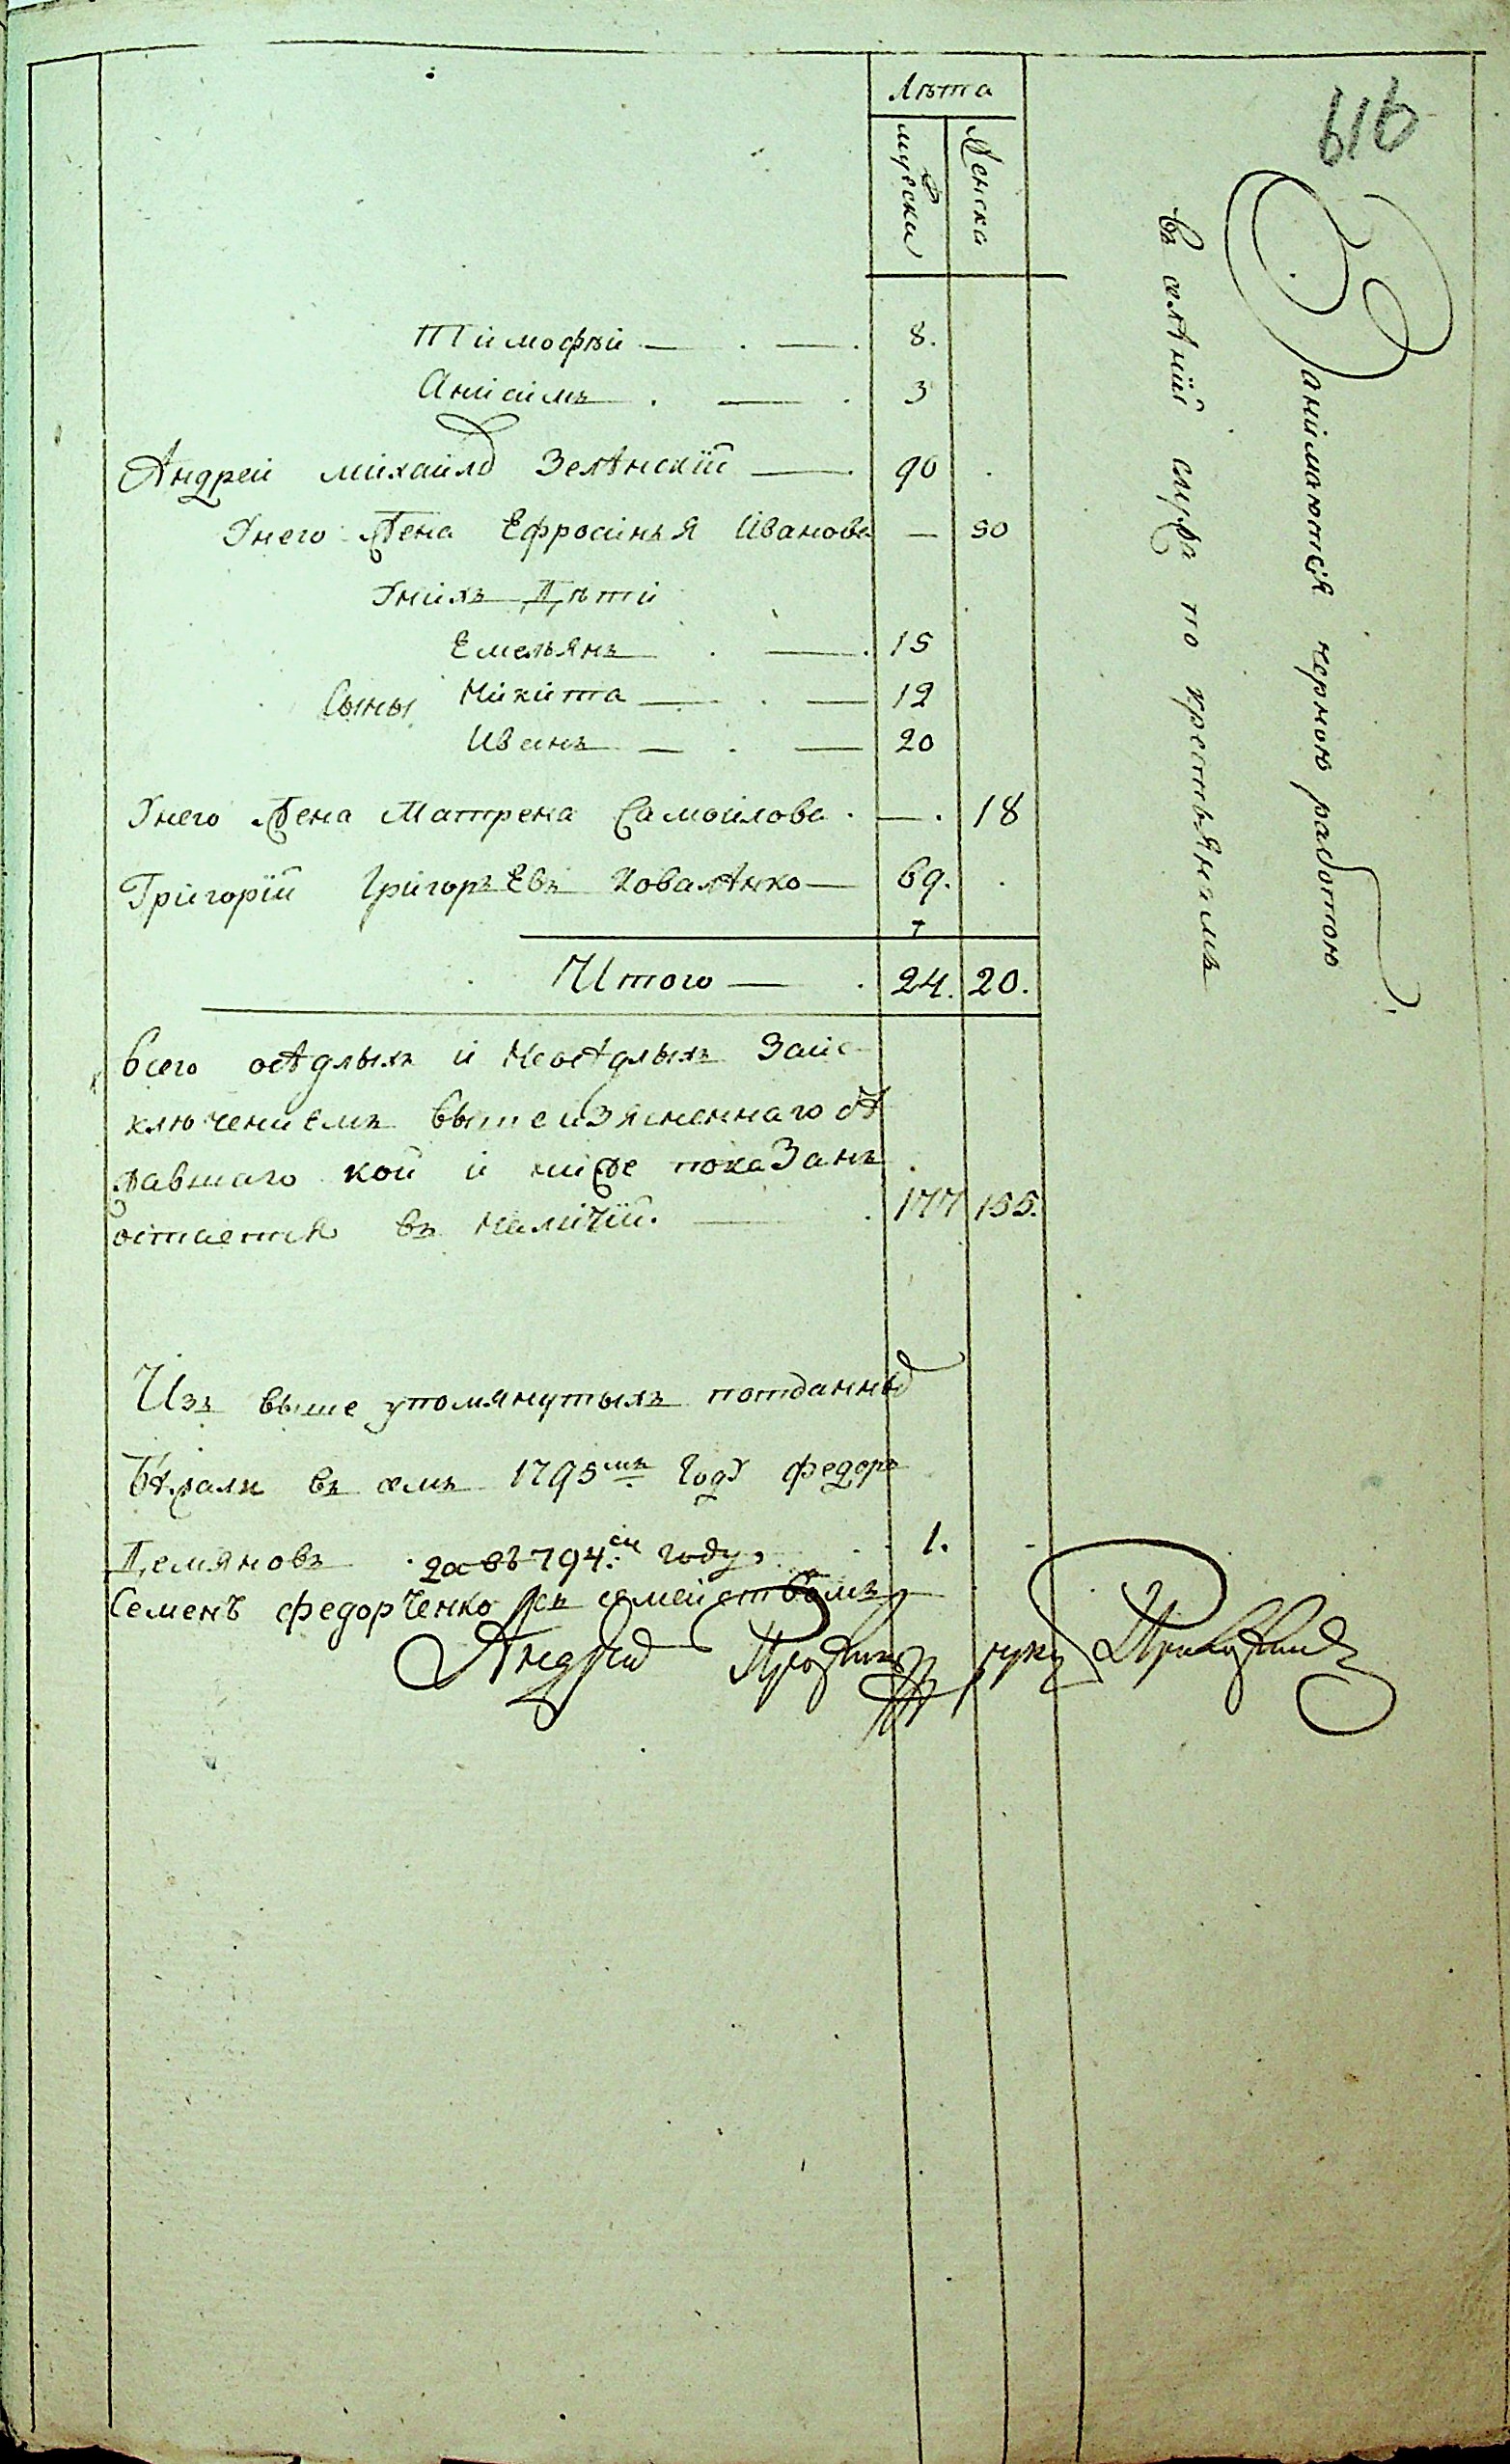 616
Лѣта
мужска Женска
Тимофѣй — . — . 8.
Анисимъ . — . 3
Андрей михайлов Зеленский — . 90
Унего Жена Ефросинья Иванова — 50
Унихъ Дѣти
Емельянъ . — . 15
Сыны Никита — . — 12
Иванъ — . — 20
Унего Жена Матрена Самойлова . — . 18
Григорий Григорьевъ Коваленко — 69.
Итого — . 24. 20.
Всего оседлыхъ и неоседлыхъ Заис
ключениемъ вышеизясненнаго бе
жавшаго кой и ниже показанъ
остается въ наличий. — . 177 155.
Изъ выше упомянутыхъ потданныхъ
Бежали въ семъ 1795мъ Году федоръ
Демяновъ . 2а въ 794.м году . . 1.
Семенъ федорченко съ семействомъ
Андрей руку Приложилъ
Занимаются черною работою
въ селений служа по крестьянамъ